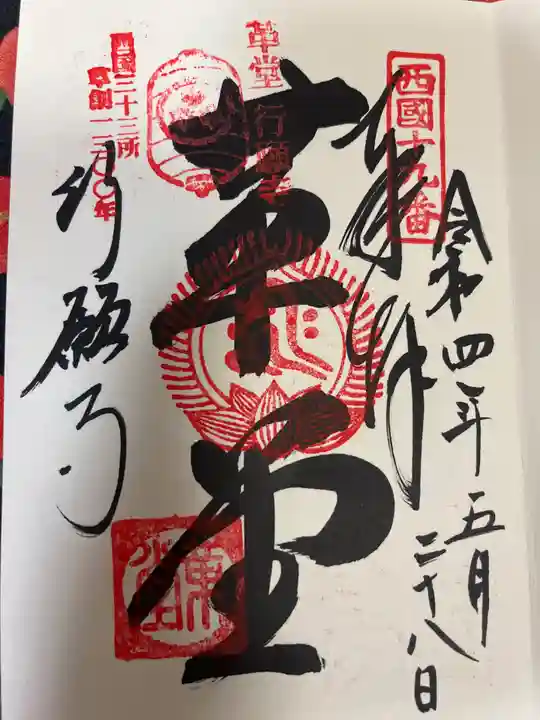 西國十九番
奉拝
令和四年五月
二十八日
革堂
革堂 行願寺
西国三十三所
草創一三〇〇年
行願寺